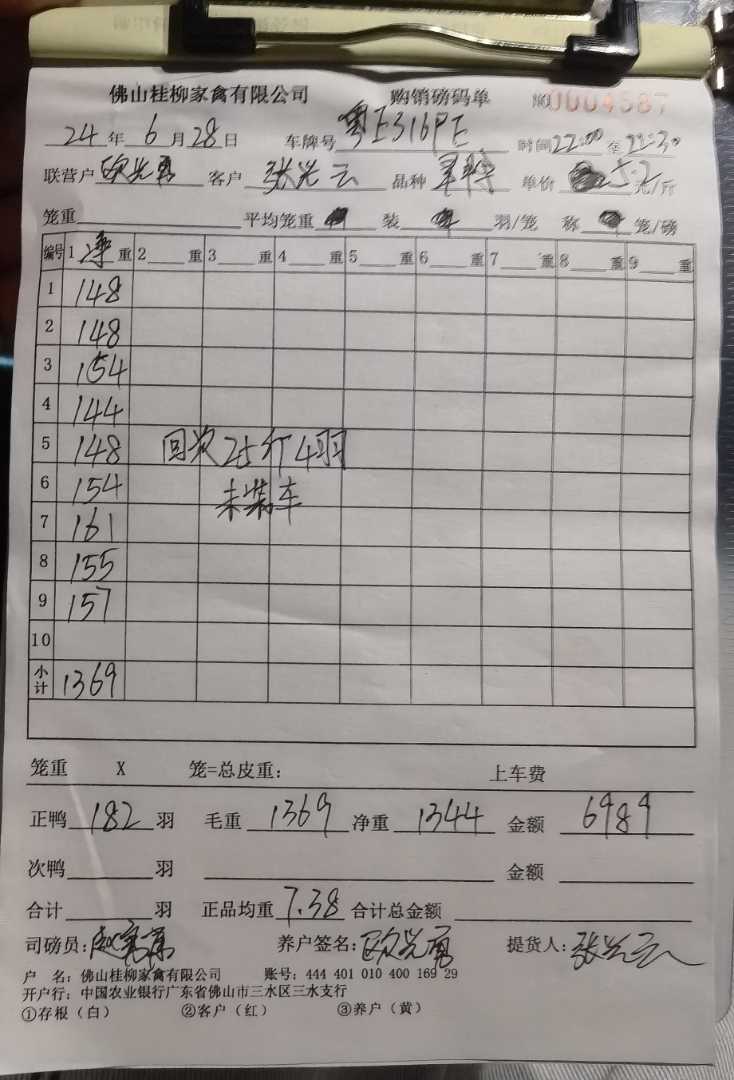 佛山桂柳家禽有限公司 购销磅码单 №0004587
24年6月28日 车牌号 粤E316PE 时间22:00至22:30
联营户 欧光勇 客户 张光云 品种 单价 5.2元/斤
笼重 平均笼重 装 羽/笼 称 笼/磅
编号 1净重 2 重 3 重 4 重 5 重 6 重 7 重 8 重 9 重
1 148
2 148
3 154
4 144
5 148 回次25斤4羽
6 154 未装车
7 161
8 155
9 157
10
小计 1369
笼重 X 笼=总皮重: 上车费
正鸭 182 羽 毛重 1369 净重 1344 金额 6989
次鸭 羽 金额
合计 羽 正品均重 7.38 合计总金额
司磅员: 养户签名: 欧光勇 提货人: 张光云
户 名: 佛山桂柳家禽有限公司 账号: 444 401 010 400 169 29
开户行: 中国农业银行广东省佛山市三水区三水支行
①存根(白) ②客户(红) ③养户(黄)